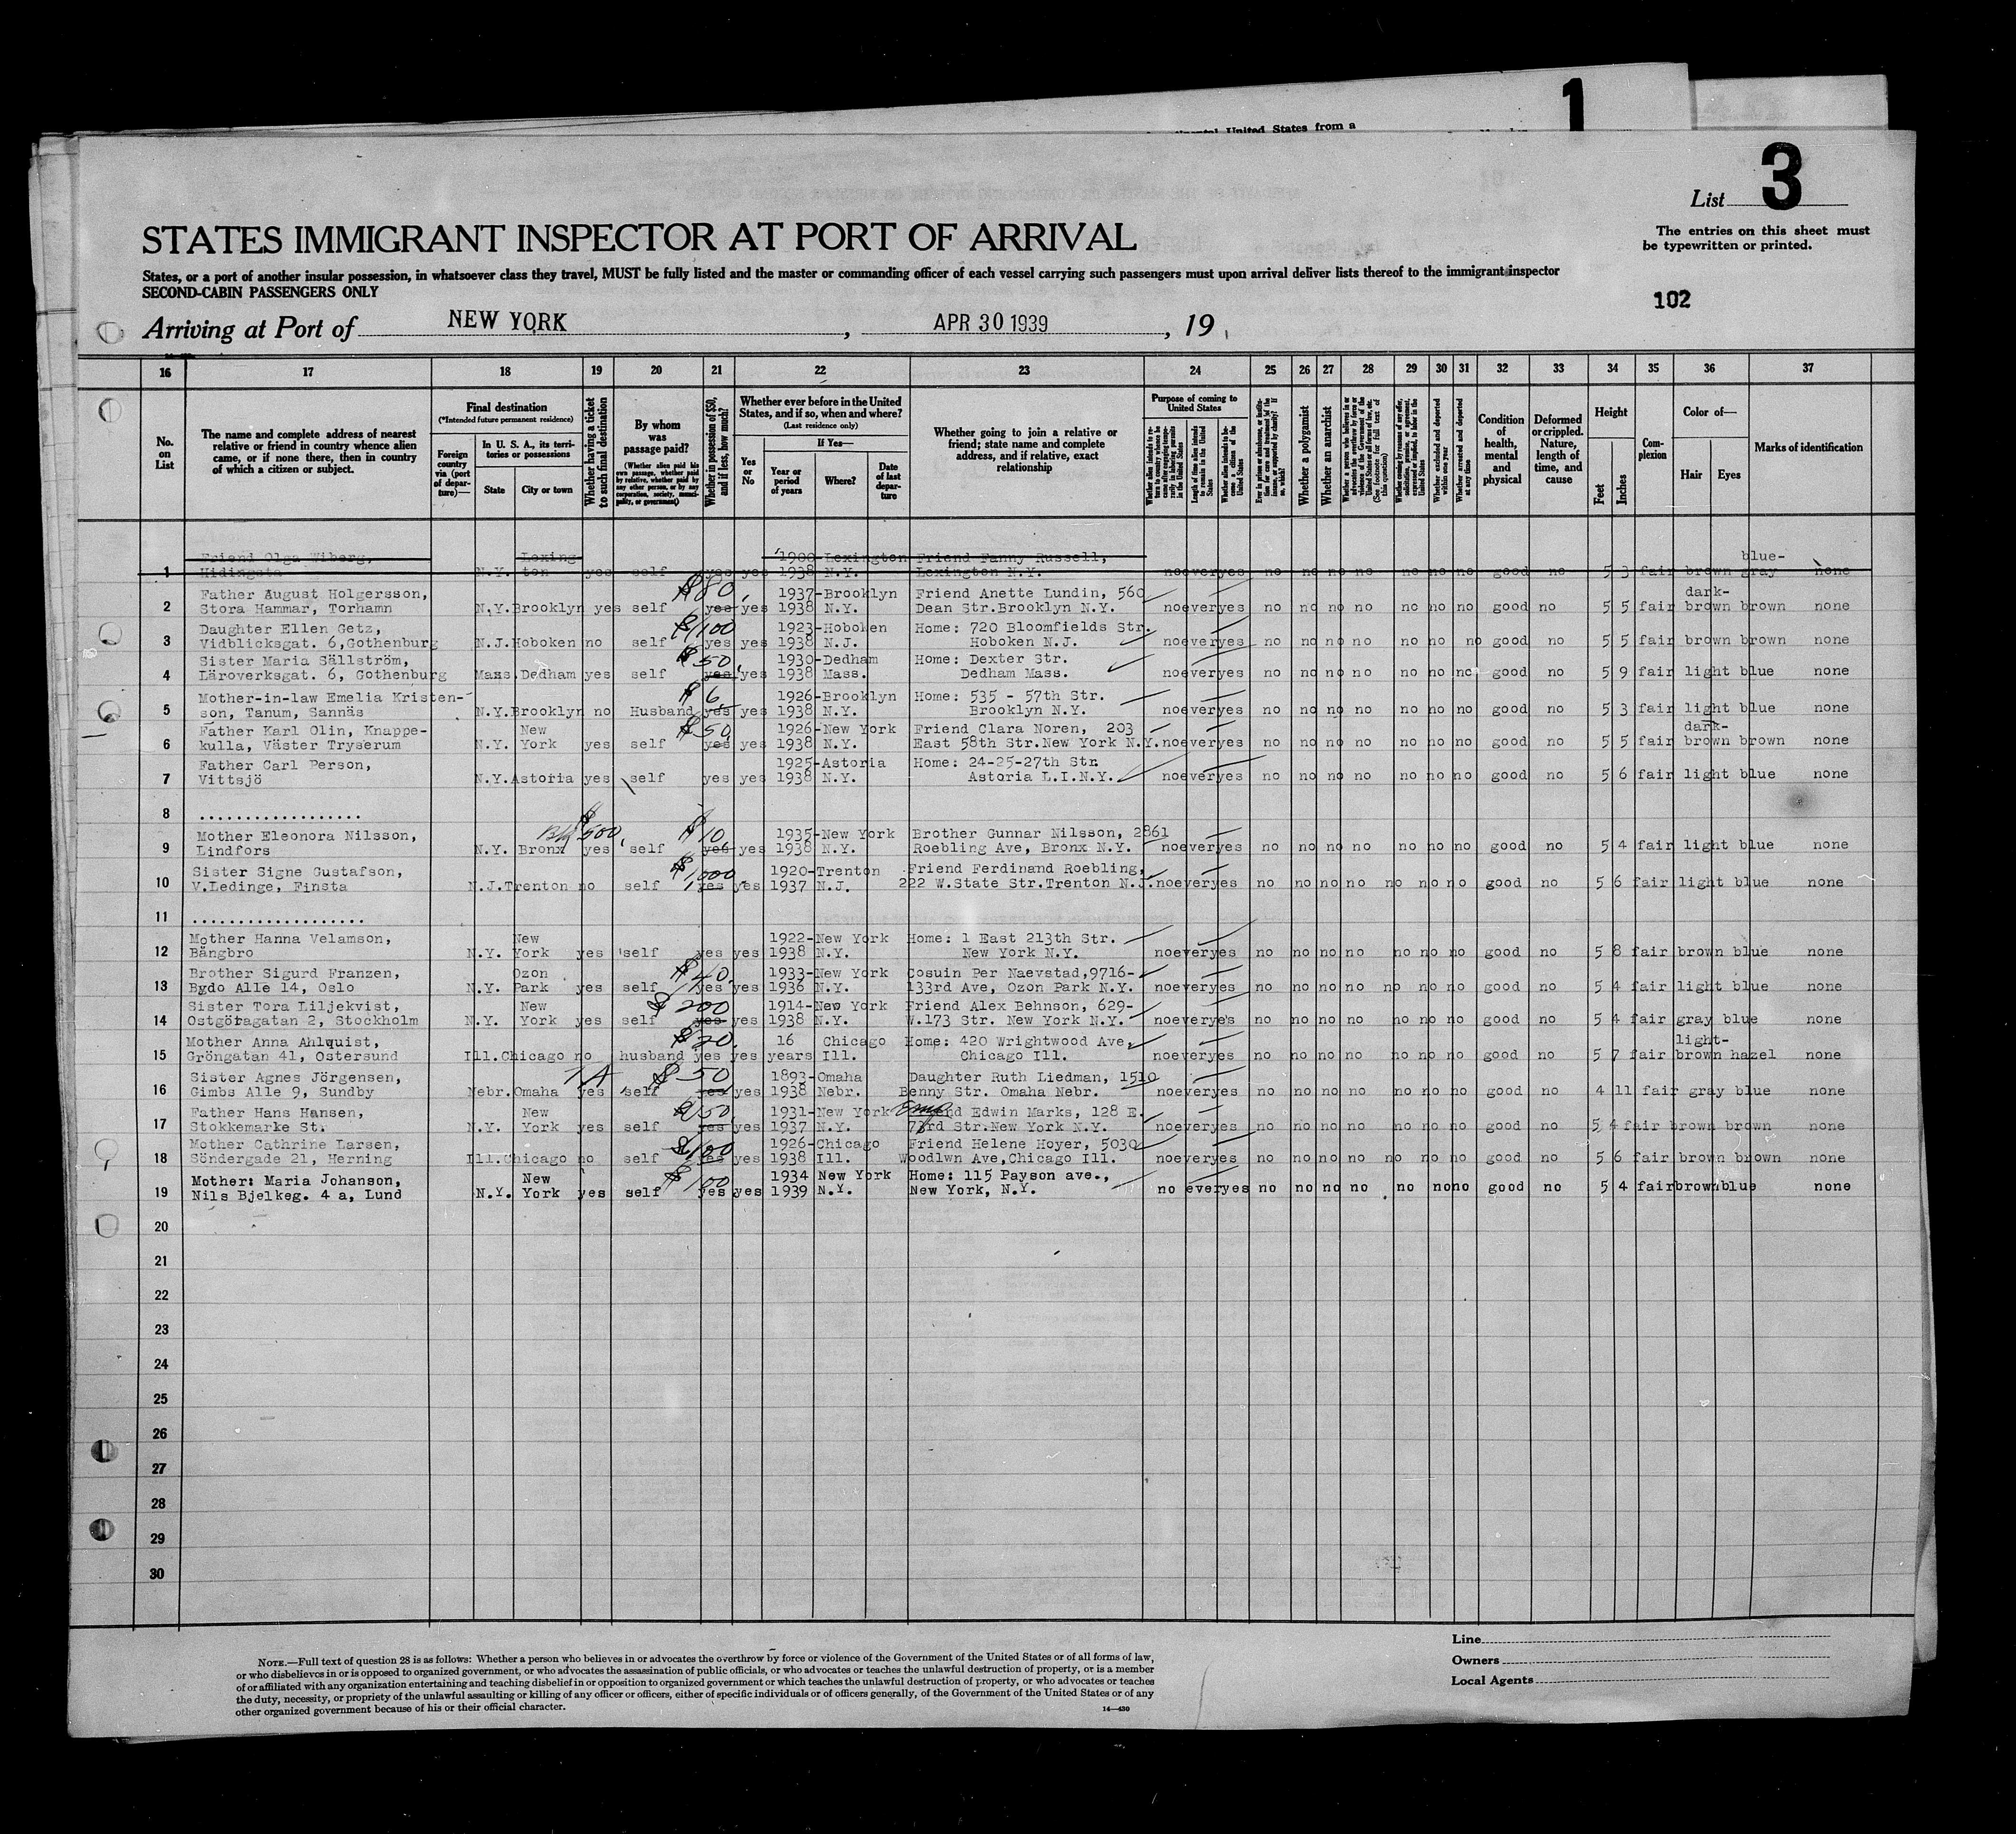 1
United States from a
List 3
STATES IMMIGRANT INSPECTOR AT PORT OF ARRIVAL
The entries on this sheet must
be typewritten or printed.
States, or a port of another insular possession, in whatsoever class they travel, MUST be fully listed and the master or commanding officer of each vessel carrying such passengers must upon arrival deliver lists thereof to the immigrant inspector
SECOND-CABIN PASSENGERS ONLY
102
Arriving at Port of NEW YORK, APR 30 1939, 19
16 17 18 19 20 21 22 23 24 25 26 27 28 29 30 31 32 33 34 35 36 37
No. on List
The name and complete address of nearest relative or friend in country whence alien came, or if none there, then in country of which a citizen or subject.
Final destination
(*Intended future permanent residence)
Foreign country via (port of departure)—
In U. S. A., its territories or possessions
State
City or town
Whether having a ticket to such final destination
By whom was passage paid?
(Whether alien paid his own passage, whether paid by relative, whether paid by any other person, or by any corporation, society, municipality, or government)
Whether in possession of $50, and if less, how much?
Whether ever before in the United States, and if so, when and where?
(Last residence only)
Yes or No
If Yes—
Year or period of years
Where?
Date of last departure
Whether going to join a relative or friend; state name and complete address, and if relative, exact relationship
Purpose of coming to United States
Whether a polygamist
Whether an anarchist
Whether excluded and deported within one year
Whether arrested and deported at any time
Condition of health, mental and physical
Deformed or crippled. Nature, length of time, and cause
Height
Feet
Inches
Complexion
Color of—
Hair
Eyes
Marks of identification
Friend Olga Wiberg, Lexing- 1900-Lexington Friend Fanny Russell, blue-
1 Hidingsta N.Y. ton yes self yes yes 1938 N.Y. Lexington N.Y. no ever yes no no no no no no no good no 5 3 fair brown gray none
Father August Holgersson, $80, 1937-Brooklyn Friend Anette Lundin, 560 dark-
2 Stora Hammar, Torhamn N.Y. Brooklyn yes self yes yes 1938 N.Y. Dean Str.Brooklyn N.Y. no ever yes no no no no no no no good no 5 5 fair brown brown none
Daughter Ellen Getz, $100 1923-Hoboken Home: 720 Bloomfields Str.
3 Vidblicksgat. 6,Gothenburg N.J. Hoboken no self yes yes 1938 N.J. Hoboken N.J. no ever yes no no no no no no no good no 5 5 fair brown brown none
Sister Maria Sällström, $50, 1930-Dedham Home: Dexter Str.
4 Läroverksgat. 6, Gothenburg Mass. Dedham yes self yes yes 1938 Mass. Dedham Mass. no ever yes no no no no no no no good no 5 9 fair light blue none
Mother-in-law Emelia Kristen- $6 1926-Brooklyn Home: 535 - 57th Str.
5 son, Tanum, Sannäs N.Y. Brooklyn no Husband yes yes 1938 N.Y. Brooklyn N.Y. no ever yes no no no no no no no good no 5 3 fair light blue none
Father Karl Olin, Knappe- New $50 1926-New York Friend Clara Noren, 203 dark-
6 kulla, Väster Tryserum N.Y. York yes self yes yes 1938 N.Y. East 58th Str.New York N.Y. no ever yes no no no no no no no good no 5 5 fair brown brown none
Father Carl Person, 1925-Astoria Home: 24-25-27th Str.
7 Vittsjö N.Y. Astoria yes self yes yes 1938 N.Y. Astoria L.I.N.Y. no ever yes no no no no no no no good no 5 6 fair light blue none
8 ..................
Mother Eleonora Nilsson, $500, $10 1935-New York Brother Gunnar Nilsson, 2861
9 Lindfors N.Y. Bronx yes self yes yes 1938 N.Y. Roebling Ave, Bronx N.Y. no ever yes no no no no no no no good no 5 4 fair light blue none
Sister Signe Gustafson, $1000 1920-Trenton Friend Ferdinand Roebling,
10 V.Ledinge, Finsta N.J. Trenton no self yes yes 1937 N.J. 222 W.State Str.Trenton N.J. no ever yes no no no no no no no good no 5 6 fair light blue none
11 ...................
Mother Hanna Velamson, New 1922-New York Home: 1 East 213th Str.
12 Bångbro N.Y. York yes self yes yes 1938 N.Y. New York N.Y. no ever yes no no no no no no no good no 5 8 fair brown blue none
Brother Sigurd Franzen, Ozon $40 1933-New York Cosuin Per Naevstad,9716-
13 Bgdo Alle 14, Oslo N.Y. Park yes self yes yes 1936 N.Y. 133rd Ave, Ozon Park N.Y. no ever yes no no no no no no no good no 5 4 fair light blue none
Sister Tora Liljekvist, New $200 1914-New York Friend Alex Behnson, 629-
14 Ostgötagatan 2, Stockholm N.Y. York yes self yes yes 1938 N.Y. W.173 Str. New York N.Y. no ever yes no no no no no no no good no 5 4 fair gray blue none
Mother Anna Ahlquist, $20. 16 Chicago Home: 420 Wrightwood Ave, light-
15 Gröngatan 41, Ostersund Ill. Chicago no husband yes yes years Ill. Chicago Ill. no ever yes no no no no no no no good no 5 7 fair brown hazel none
Sister Agnes Jörgensen, TA $50 1893-Omaha Daughter Ruth Liedman, 1510
16 Gimbs Alle 9, Sundby Nebr. Omaha yes self yes yes 1938 Nebr. Benny Str. Omaha Nebr. no ever yes no no no no no no no good no 4 11 fair gray blue none
Father Hans Hansen, New $150 1931-New York Edwin Marks, 128 E.
17 Stokkemarke St. N.Y. York yes self yes yes 1937 N.Y. 73rd Str.New York N.Y. no ever yes no no no no no no no good no 5 4 fair brown brown none
Mother Cathrine Larsen, $100 1926-Chicago Friend Helene Hoyer, 5030
18 Söndergade 21, Herning Ill. Chicago no self yes yes 1938 Ill. Woodlwn Ave,Chicago Ill. no ever yes no no no no no no no good no 5 6 fair brown brown none
Mother: Maria Johanson, New $100 1934 New York Home: 115 Payson ave.,
19 Nils Bjelkeg. 4 a, Lund N.Y. York yes self yes yes 1939 N.Y. New York, N.Y. no ever yes no no no no no no no good no 5 4 fair brown blue none
20
21
22
23
24
25
26
27
28
29
30
Line
Owners
Local Agents
NOTE.—Full text of question 28 is as follows: Whether a person who believes in or advocates the overthrow by force or violence of the Government of the United States or of all forms of law,
or who disbelieves in or is opposed to organized government, or who advocates the assassination of public officials, or who advocates or teaches the unlawful destruction of property, or is a member
of or affiliated with any organization entertaining and teaching disbelief in or opposition to organized government or which teaches the unlawful destruction of property, or who advocates or teaches
the duty, necessity, or propriety of the unlawful assaulting or killing of any officer or officers, either of specific individuals or of officers generally, of the Government of the United States or of any
other organized government because of his or their official character.
14—430